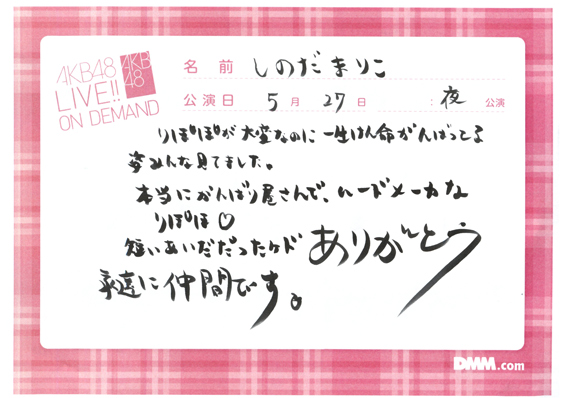 AKB48
LIVE!!
ON DEMAND
AKB
48
名前 しのだまりこ
公演日 5月27日 : 夜 公演
りぽぽが大変なのに一生けん命がんばってる
姿みんな見てました。
本当にがんばり屋さんで、ムードメーカな
りぽぽ♡
短いあいだだったケド ありがとう
永遠に仲間です。
DMM.com